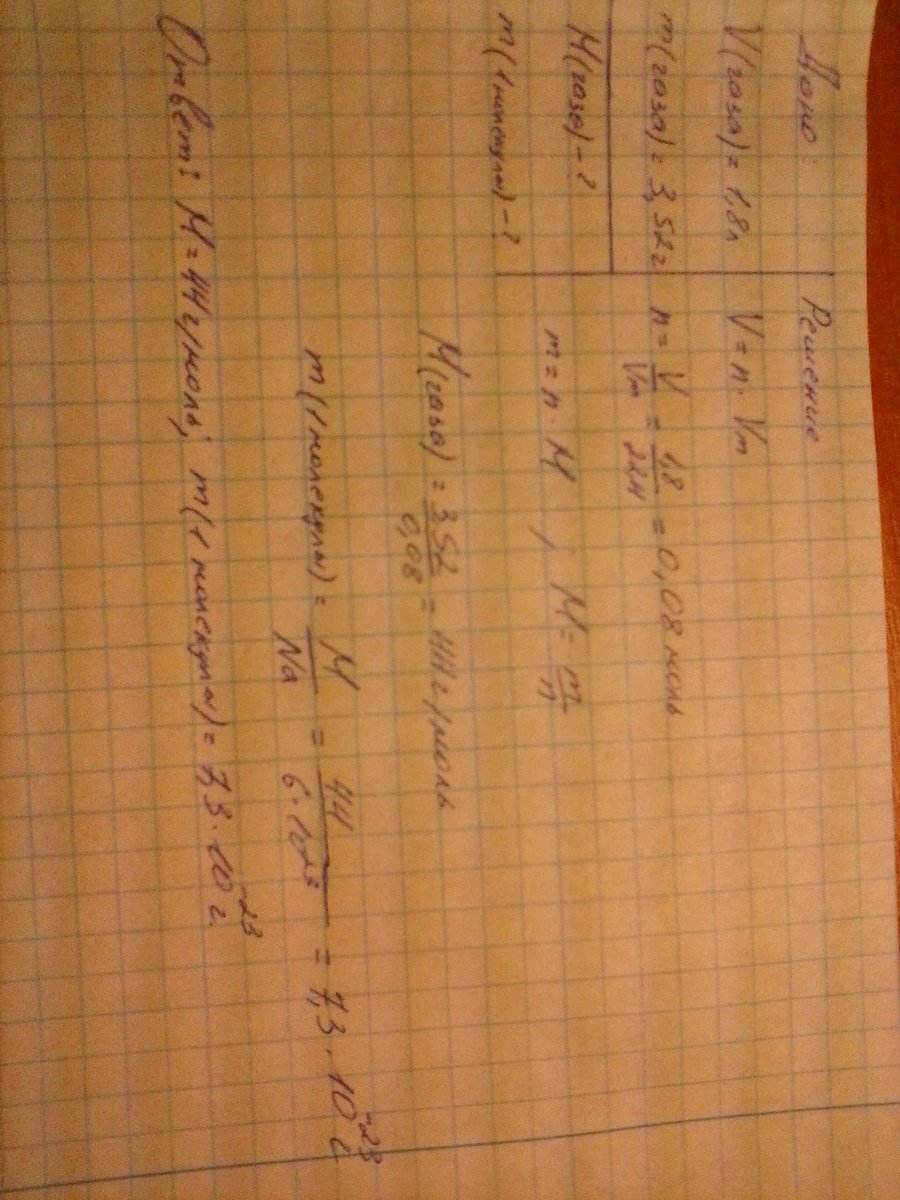 Дано:
V(газа) = 1,8л
m(газа) = 3,52г
M(газа) - ?
m(1молекулы) - ?
Решение
V = n · Vm
n = V/Vm = 1,8/22,4 = 0,08 моль
m = n · M ; M = m/n
M(газа) = 3,52/0,08 = 44 г/моль
m(1молекулы) = M/Na = 44/6·10²³ = 7,3 · 10⁻²³ г
Ответ: M = 44 г/моль; m(1 молекулы) = 7,3 · 10⁻²³ г.